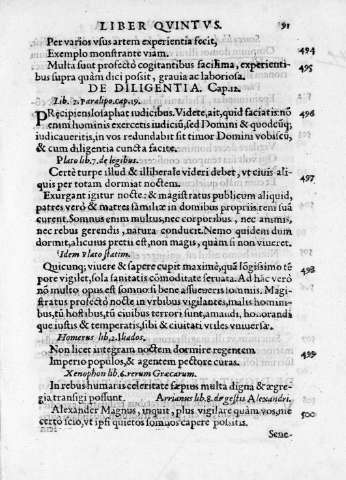 LIBER QVINTVS. 91
Per varios vsus artem experientia fecit,
Exemplo monstrante viam. 494
Multa sunt profectò cogitantibus facilima, experienti- 495
bus supra quàm dici possit, grauia ac laboriosa.
DE DILIGENTIA. Cap.12.
Lib. 2. paralipo. cap. 19.
PRęcipiens Iosaphat iudicibus. Videte, ait, quid faciatis: nō 496
enim hominis exercetis iudiciū, sed Domini & quodcūq;
iudicaueritis, in vos redundabit sit timor Domini vobiscū,
& cum diligentia cuncta facite.
Plato lib. 7. de legibus.
Certè turpe illud & illiberale videri debet, vt ciuis ali- 497
quis per totam dormiat noctem.
Exurgant igitur nocte: & magistratus publicum aliquid,
patres verò & matres familiæ in domibus propriis rem suā
curent. Somnus enim multus, nec corporibus, nec animis,
nec rebus gerendis, natura conducit. Nemo quidem dum
dormit, alicuius pretii est, non magis, quàm si non viueret.
Idem Plato statim.
Quicunq; viuere & sapere cupit maximè, quā lōgissimo tē 498
pore vigilet, sola sanitatis cōmoditate seruata. Ad hāc verò
nō multo opus est somno: si bene assueueris somnis. Magi-
stratus profectò nocte in vrbibus vigilantes, malis homini-
bus, tū hostibus, tū ciuibus terrori sunt, amandi, honorandi
que iustis & temperatis, sibi & ciuitati vtiles vniuersæ.
Homerus lib. 2. Iliados.
Non licet integram noctem dormire regentem 499
Imperio populos, & agentem pectore curas.
Xenophon lib. 6. rerum Græcarum.
In rebus humanis celeritate sæpius multa digna & ægre-
gia transigi possunt. Arrianus lib. 8. de gestis Alexandri.
Alexander Magnus, inquit, plus vigilare quàm vos, me 500
certo scio, vt ipsi quietos somnos capere possitis.
Sene-